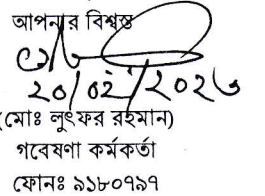 আপনার বিশ্বস্ত
২০/০২/২০২৬
(মোঃ লুৎফর রহমান)
গবেষণা কর্মকর্তা
ফোনঃ ৯১৮০৭৯৭